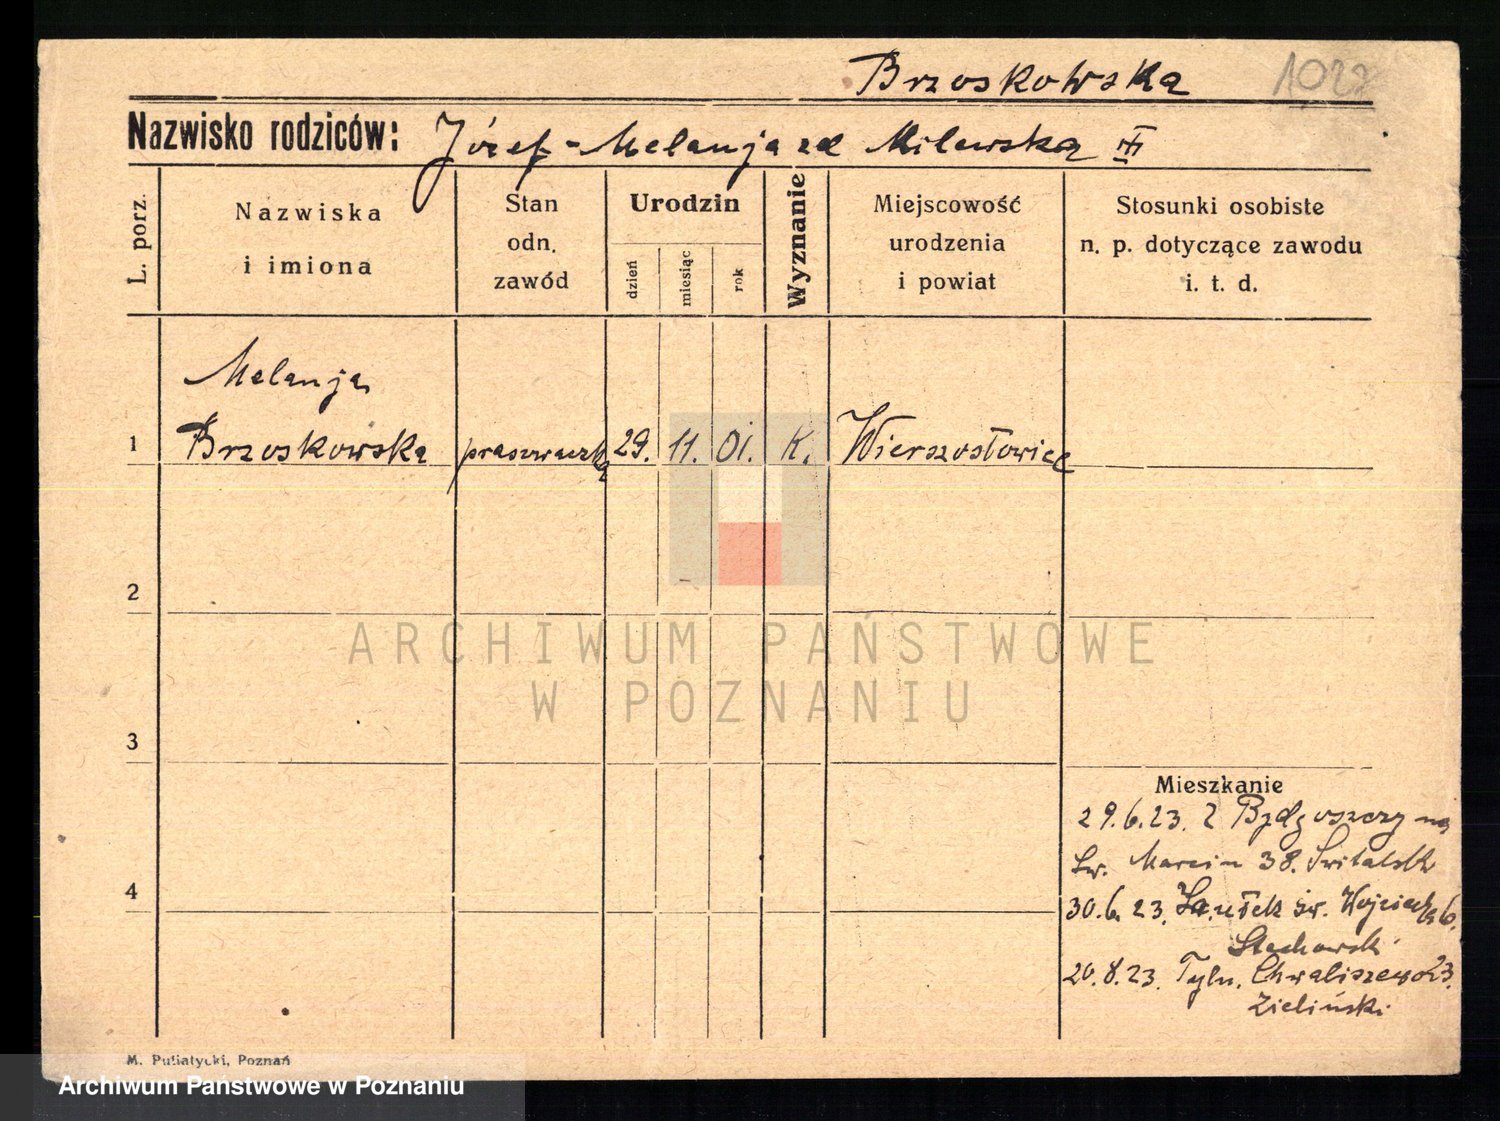 Brzoskowska 1027
Nazwisko rodziców: Józef - Melanja zd Milewska
L. porz.
Nazwiska
i imiona
Stan
odn.
zawód
Urodzin
dzień
miesiąc
rok
Wyznanie
Miejscowość
urodzenia
i powiat
Stosunki osobiste
n. p. dotyczące zawodu
i. t. d.
Melanja
1 Brzoskowska prasowaczka 29. 11. 01. K. Wierzosłowice
2
ARCHIWUM PAŃSTWOWE
W POZNANIU
3
Mieszkanie
29.6.23. z Bydgoszczy na
św. Marcin 38. Świtalski
4
30.6.23. św. Wojciech 6.
Stachowski
20.8.23. Tyln. Chwaliszewo 23.
Zieliński
M. Putiatycki, Poznań
Archiwum Państwowe w Poznaniu